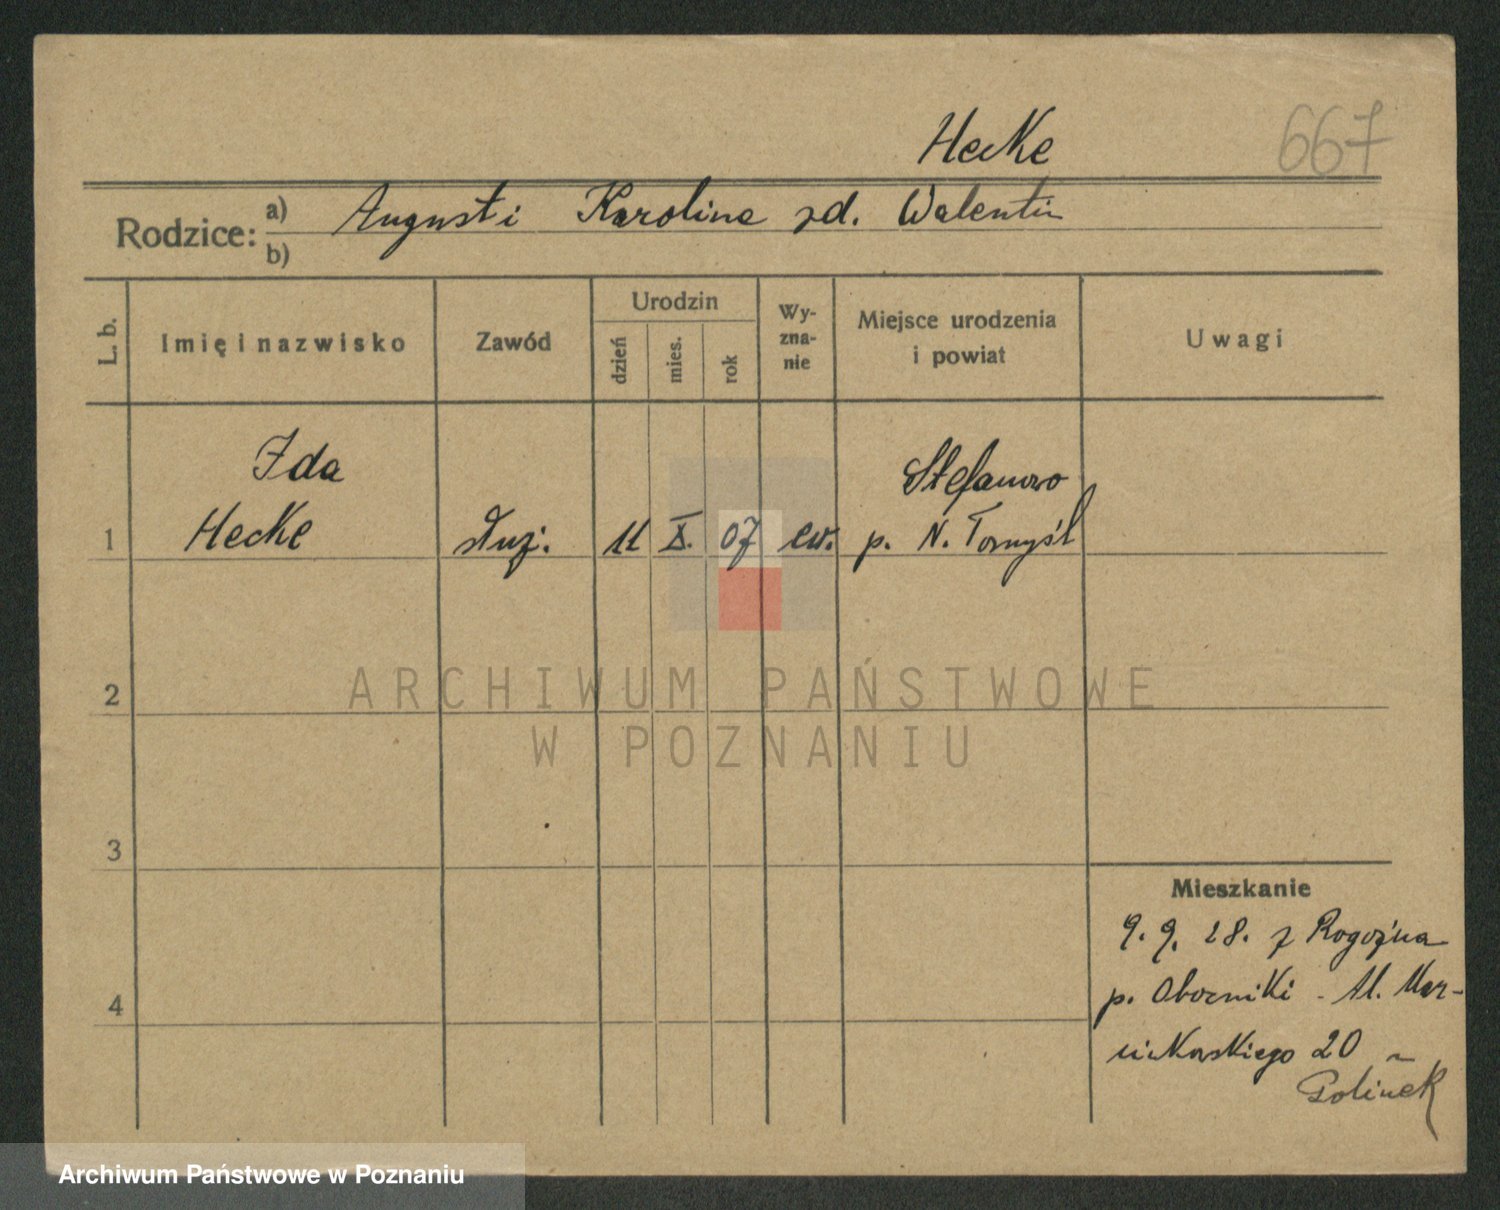 Hecke 667
Rodzice: a) August i Karolina zd. Walentin
b)
L. b. Imię i nazwisko Zawód Urodzin dzień mies. rok Wyznanie Miejsce urodzenia i powiat Uwagi
Ida
Hecke
1 służ. 11 X. 07 ew. Stefanowo
p. N. Tomyśl
2
3
4
Mieszkanie
9. 9. 28. z Rogoźna
p. Oborniki - Al. Mar-
cinkowskiego 20
ARCHIWUM PAŃSTWOWE
W POZNANIU
Archiwum Państwowe w Poznaniu